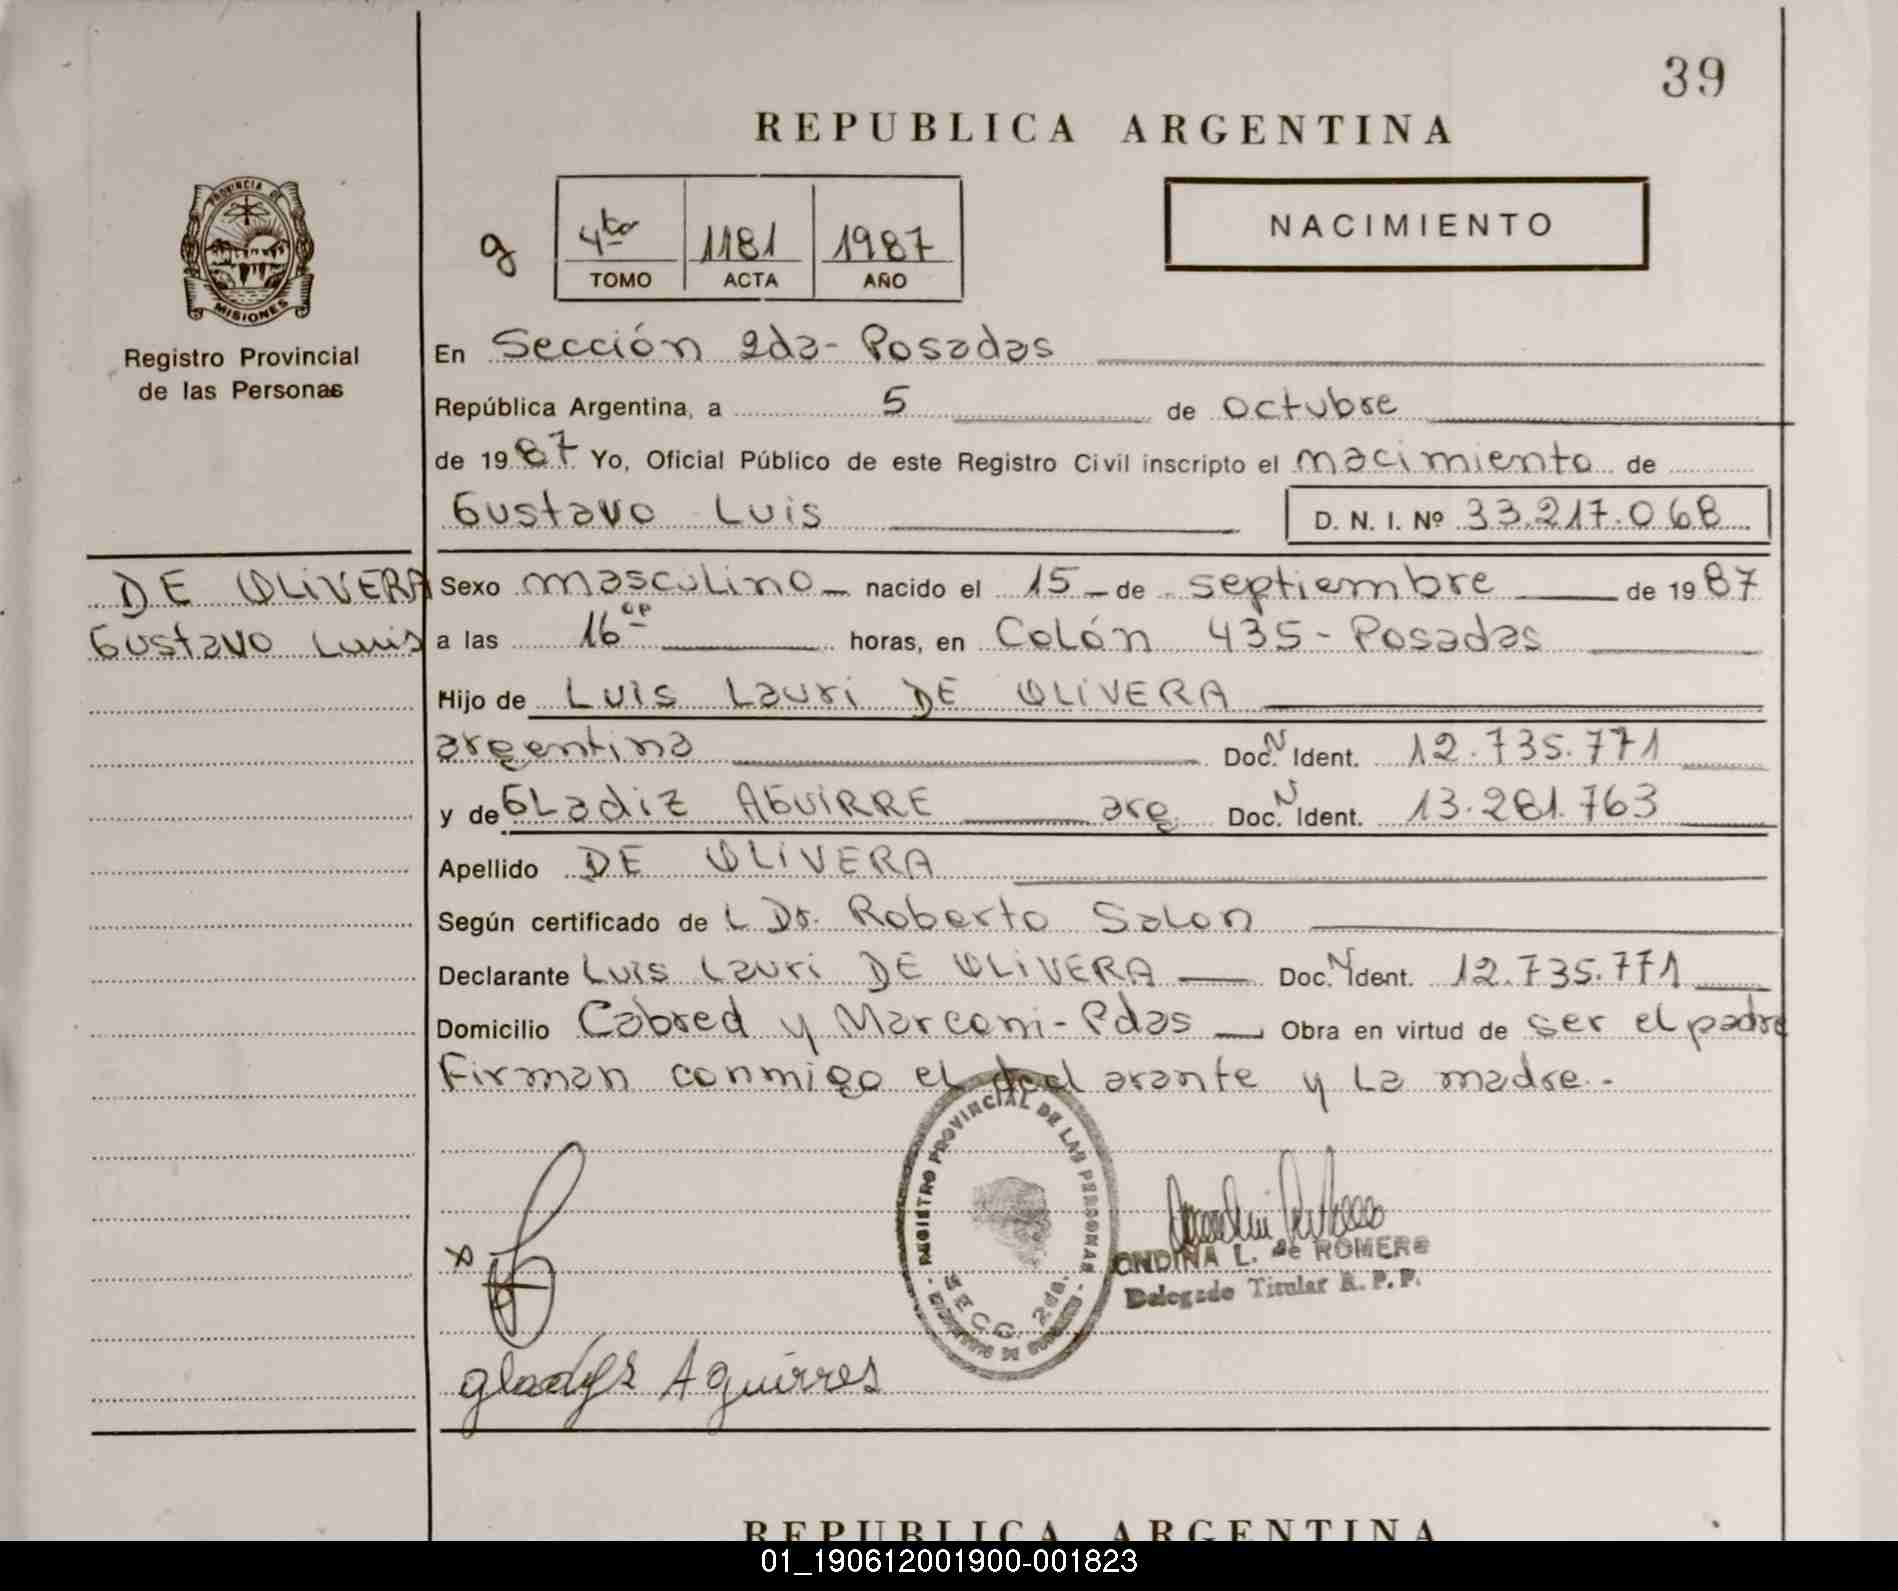 39
REPUBLICA ARGENTINA
PROVINCIA DE
MISIONES
Registro Provincial
de las Personas
g
4to 1181 1987
TOMO ACTA AÑO
NACIMIENTO
En Sección 2da- Posadas
República Argentina, a 5 de octubre
de 1987 Yo, Oficial Público de este Registro Civil inscripto el nacimiento de
Gustavo Luis D. N. I. Nº 33.217.068
DE OLIVERA
Gustavo Luis
Sexo masculino nacido el 15 de septiembre de 1987
a las 16 horas, en Colón 435 - Posadas
Hijo de Luis Lauri DE OLIVERA
argentina Doc. N Ident. 12.735.771
y de GLadiz AGUIRRE arg. Doc. N Ident. 13.281.763
Apellido DE OLIVERA
Según certificado de L Dr. Roberto Salon
Declarante Luis Lauri DE OLIVERA Doc. N Ident. 12.735.771
Domicilio Cabred y Marconi - Pdas Obra en virtud de ser el padre
Firman conmigo el declarante y La madre.-
REGISTRO PROVINCIAL DE LAS PERSONAS
SECC. 2da.
x
ONDINA L. de ROMERO
Delegado Titular R. P. P.
gladys Aguirres
REPUBLICA ARGENTINA
01_190612001900-001823